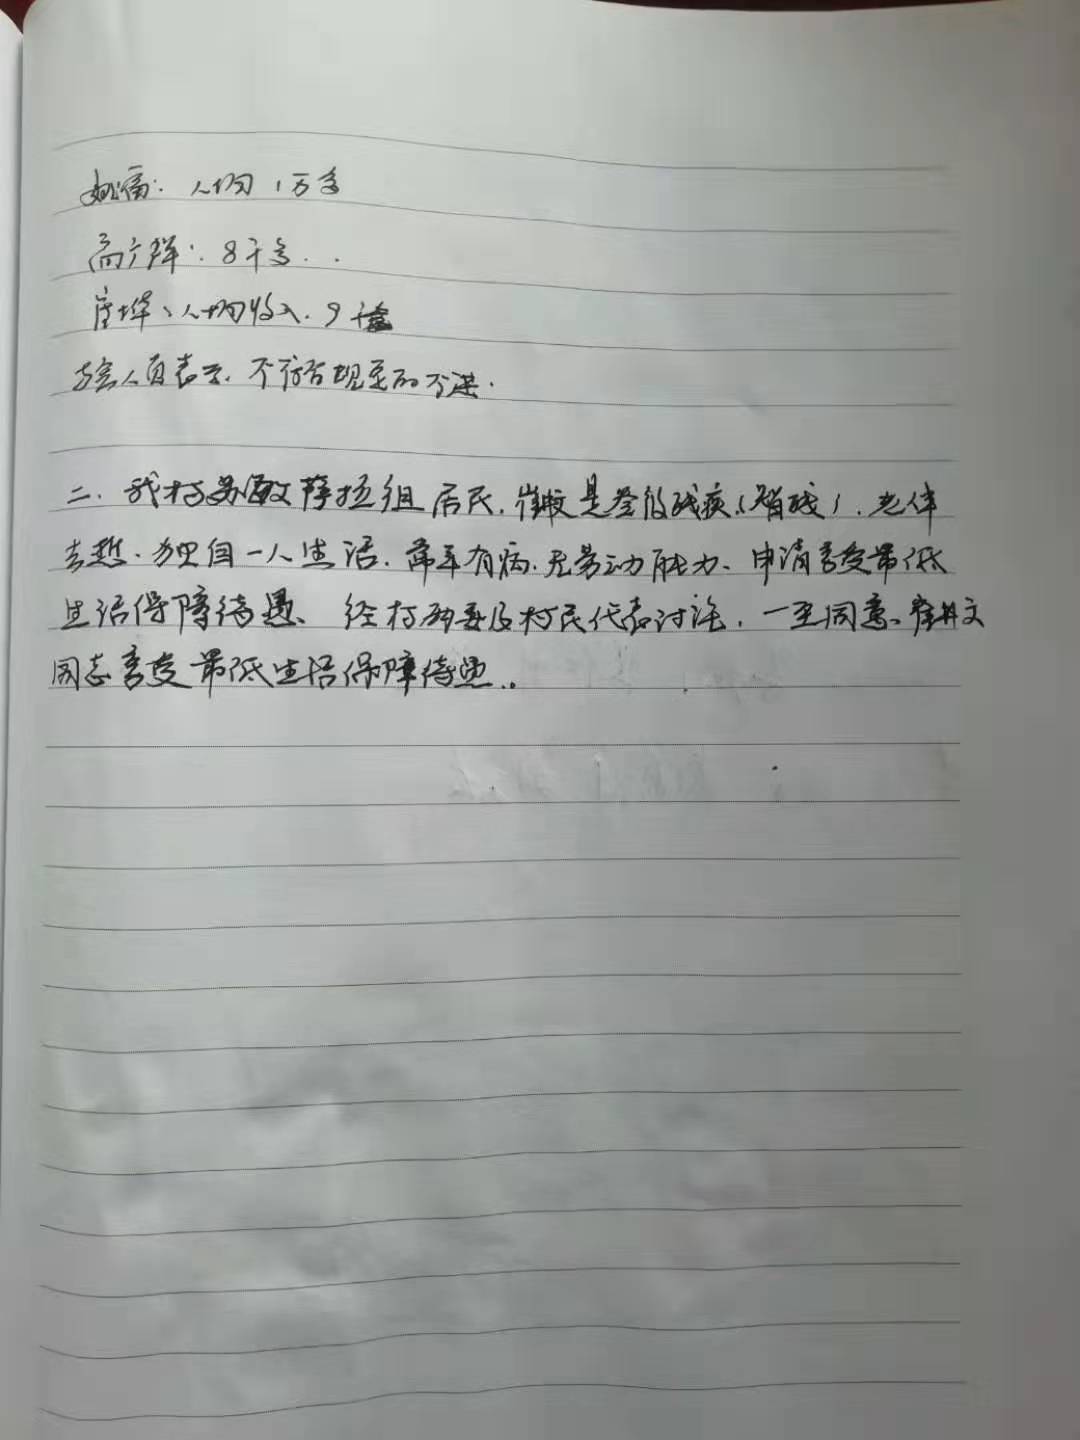 人均1万多
高广群：8千多..
崔坤、人均收入.9千
与会人员表示、不符合规定的不进.
二.我村苏敏萨拉组居民.是叁级残疾(智残).老伴
去逝.独自一人生活.常年有病.无劳动能力、申请享受最低
生活保障待遇、经村两委及村民代表讨论，一至同意、崔井文
同志享受最低生活保障待遇..